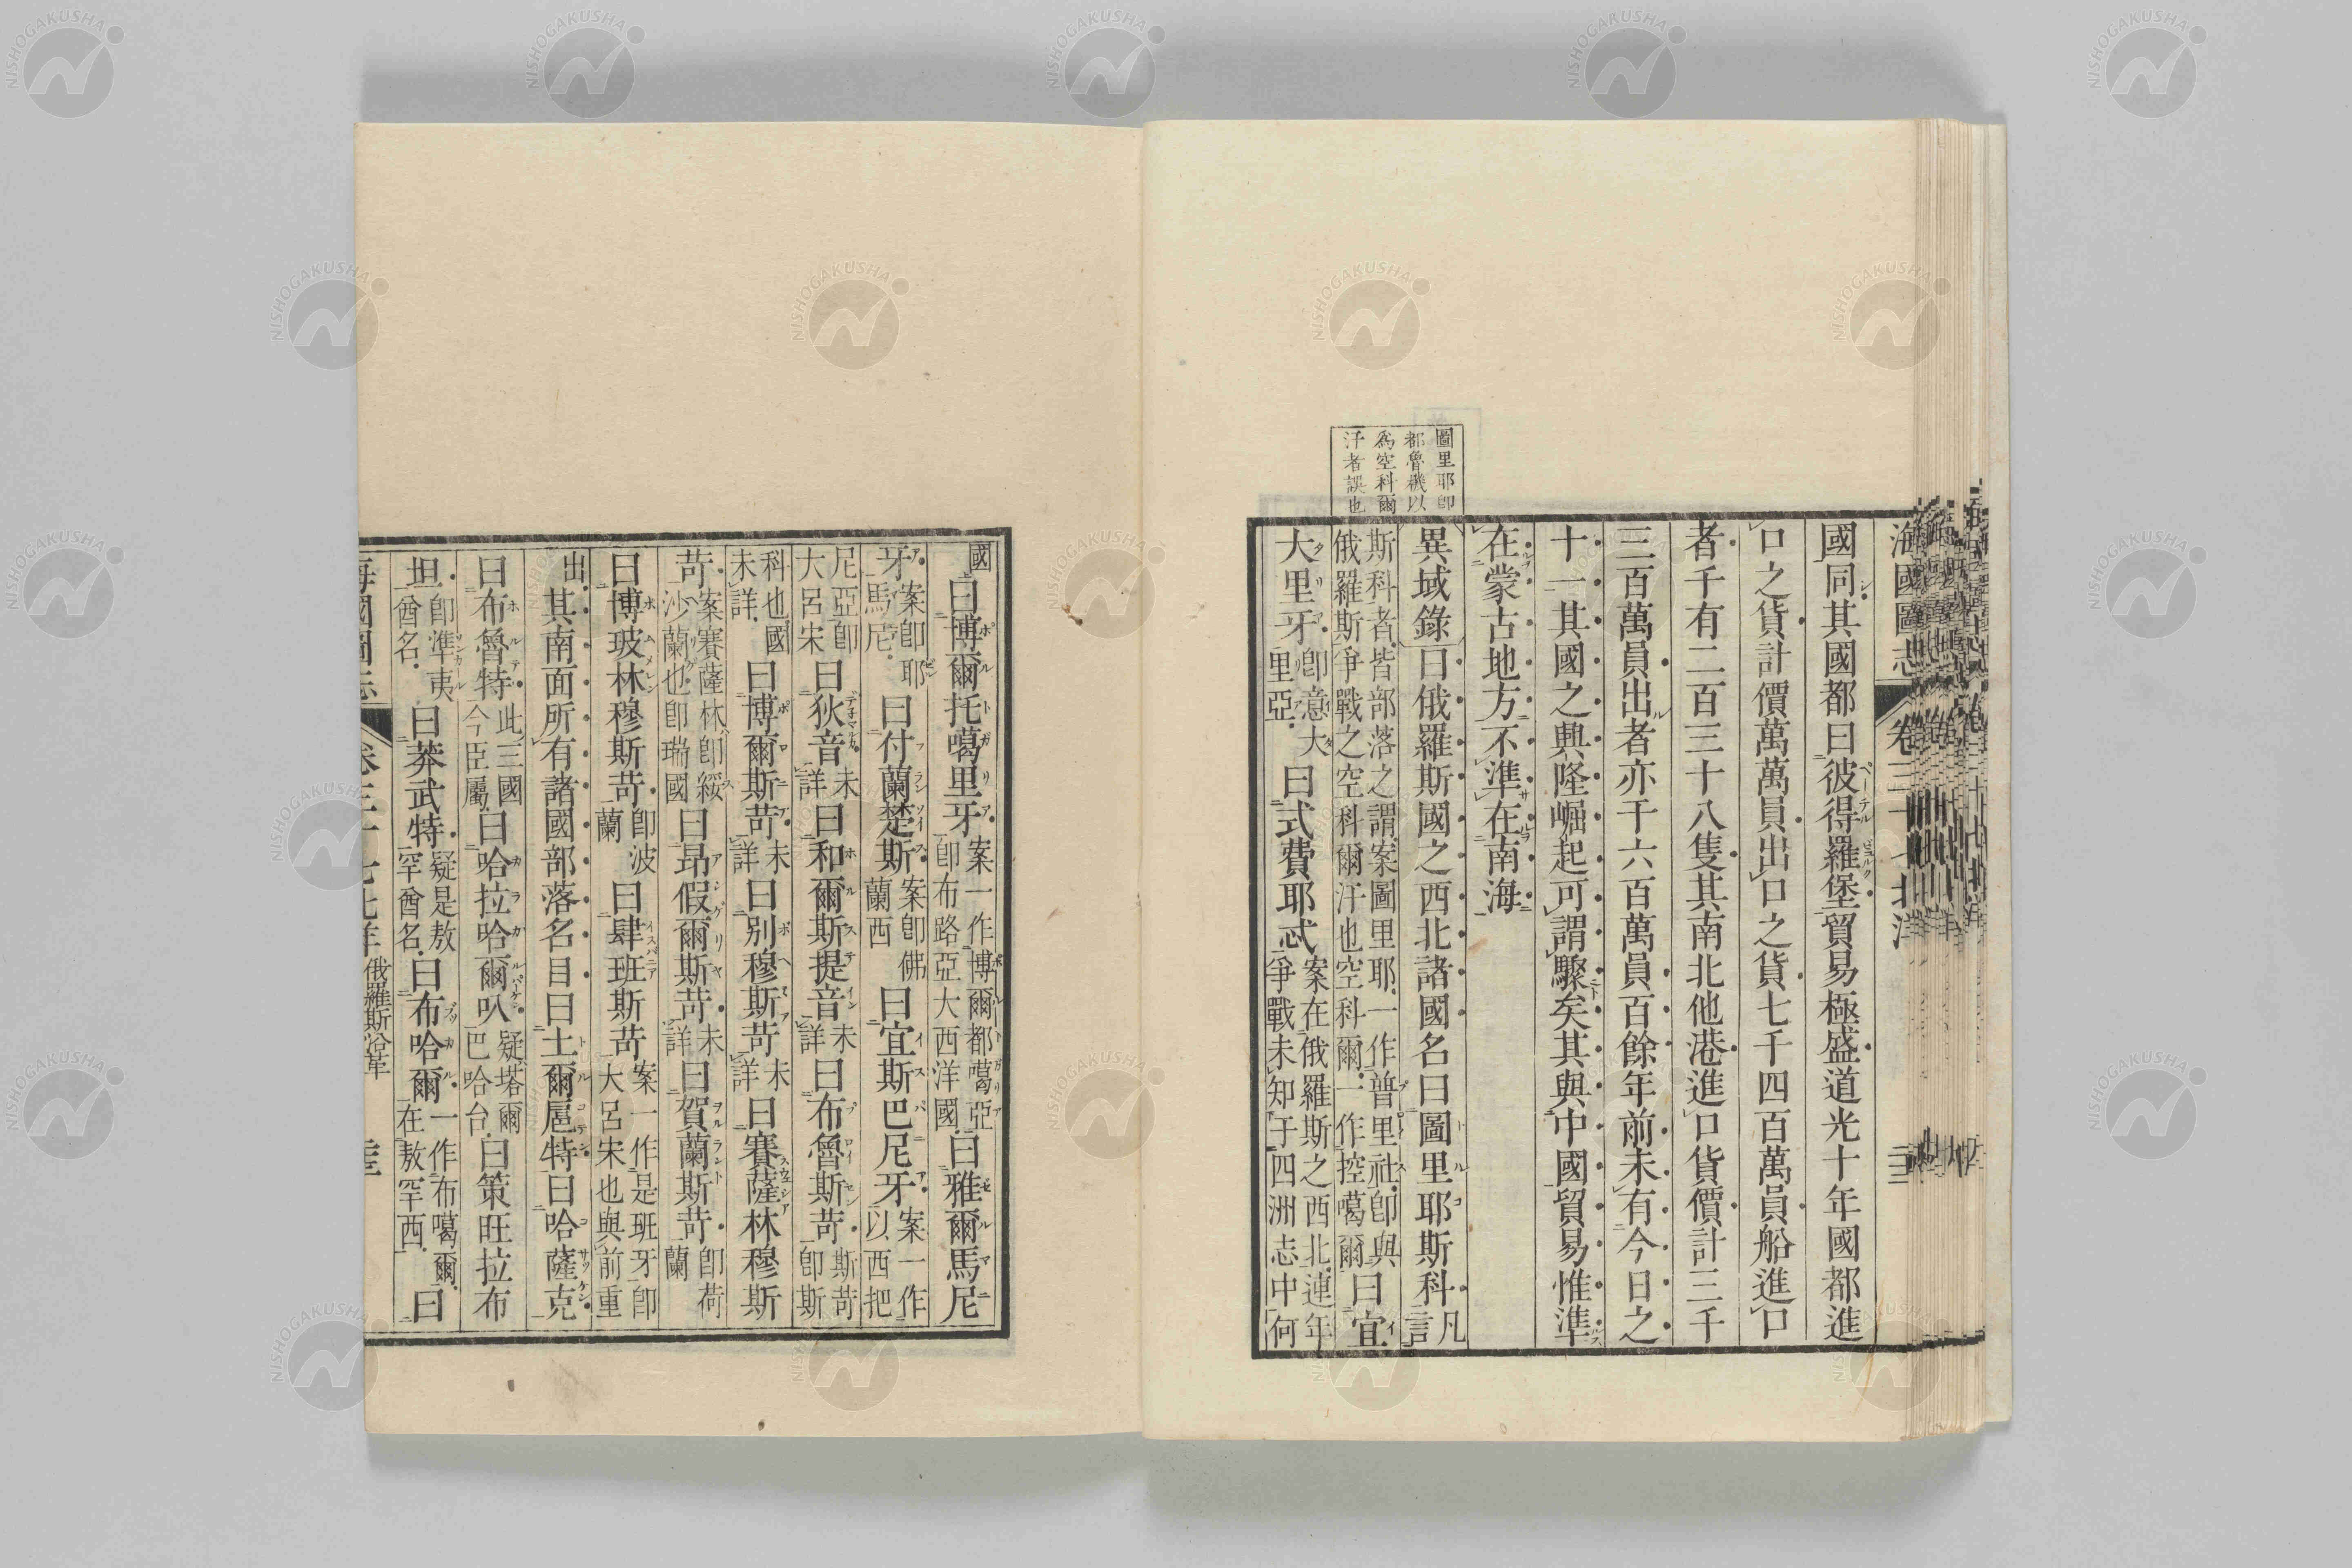 海國圖志 卷三十七北洋
國同其國都曰彼得羅堡貿易極盛道光十年國都進
口之貨計價萬萬員出口之貨七千四百萬員船進口
者千有二百三十八隻其南北他港進口貨價計三千
三百萬員出者亦千六百萬員百餘年前未有今日之
十一其國之興隆崛起可謂驟矣其與中國貿易惟準
在蒙古地方不準在南海
圖里耶卽
都魯機以
爲空科爾
汗者誤也
異域錄曰俄羅斯國之西北諸國名曰圖里耶斯科凡言
斯科者皆部落之謂案圖里耶一作普里社卽與
俄羅斯爭戰之空科爾汗也空科爾一作控噶爾曰宜
大里牙卽意大里亞曰式費耶忒案在俄羅斯之西北連年
爭戰未知于四洲志中何
國曰博爾托噶里牙案一作博爾都噶亞
卽布路亞大西洋國曰雅爾馬尼
牙案卽耶馬尼曰付蘭楚斯案卽佛蘭西曰宜斯巴尼牙案一作
以西把
尼亞卽大呂宋曰狄音未詳曰和爾斯提音未詳曰布魯斯苛斯苛
卽斯
科也國未詳曰博爾斯苛未詳曰別穆斯苛未詳曰賽薩林穆斯
苛案賽薩林卽綏沙蘭也卽瑞國曰昂假爾斯苛未詳曰賀蘭斯苛卽荷蘭
曰博玻林穆斯苛卽波蘭曰肆班斯苛案一作是班牙卽
大呂宋也與前重
出其南面所有諸國部落名目曰土爾扈特曰哈薩克
曰布魯特此三國今臣屬曰哈拉哈爾叭疑塔爾巴哈台曰策旺拉布
坦卽準夷酋名曰莽武特疑是敖罕酋名曰布哈爾一作布噶爾
在敖罕西曰
海國圖志 卷三十七北洋 俄羅斯沿革
NISHOGAKUSHA